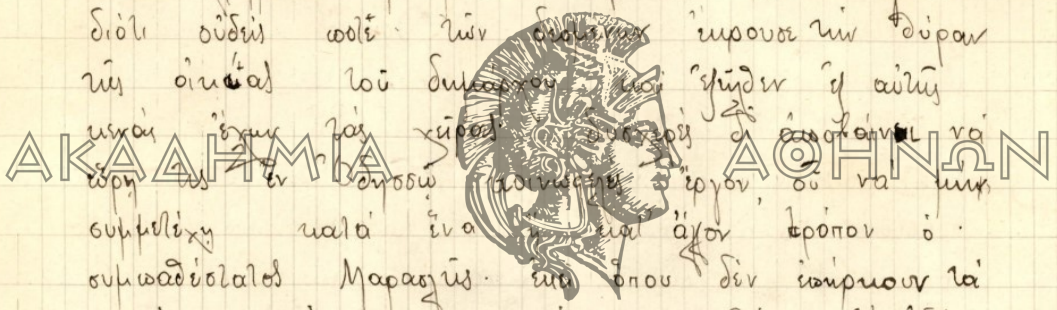 διότι οὐδείς ποτέ τῶν δεομένων ἔκρουσε τήν θύραν
τῆς οἰκίας τοῦ δημάρχου καί ἐξῆλθεν ἐξ αὐτῆς
κενάς ἔχων τάς χεῖρας. δυσχερές δέ ἀποβαίνει νά
εὕρῃ τις ἐν Ὀδησσῷ κοινωφελές ἔργον οὗ νά μήν
συμμετέχῃ κατά ἕνα ἤ κατ' ἄλλον τρόπον ὁ
συμπαθέστατος Μαρασλῆς. ἐκεῖ ὅπου δέν ἐπήρκουν τά
ΑΚΑΔΗΜΙΑ ΑΘΗΝΩΝ